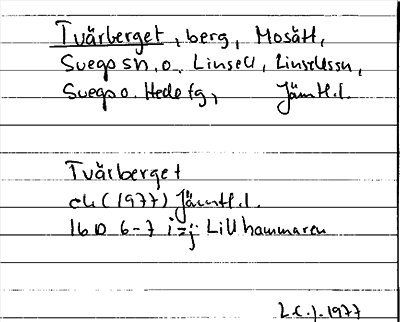 Tvärberget, berg, Mosätt,
Svegs sn, o. Linsell, Linsells sn,
Svegs o. Hede tg, Jämtl.l.
Tvärberget
ek (1977) Jämtl.l.
16D 6-7 i-j Lillhammaren
L.C.J. 1977